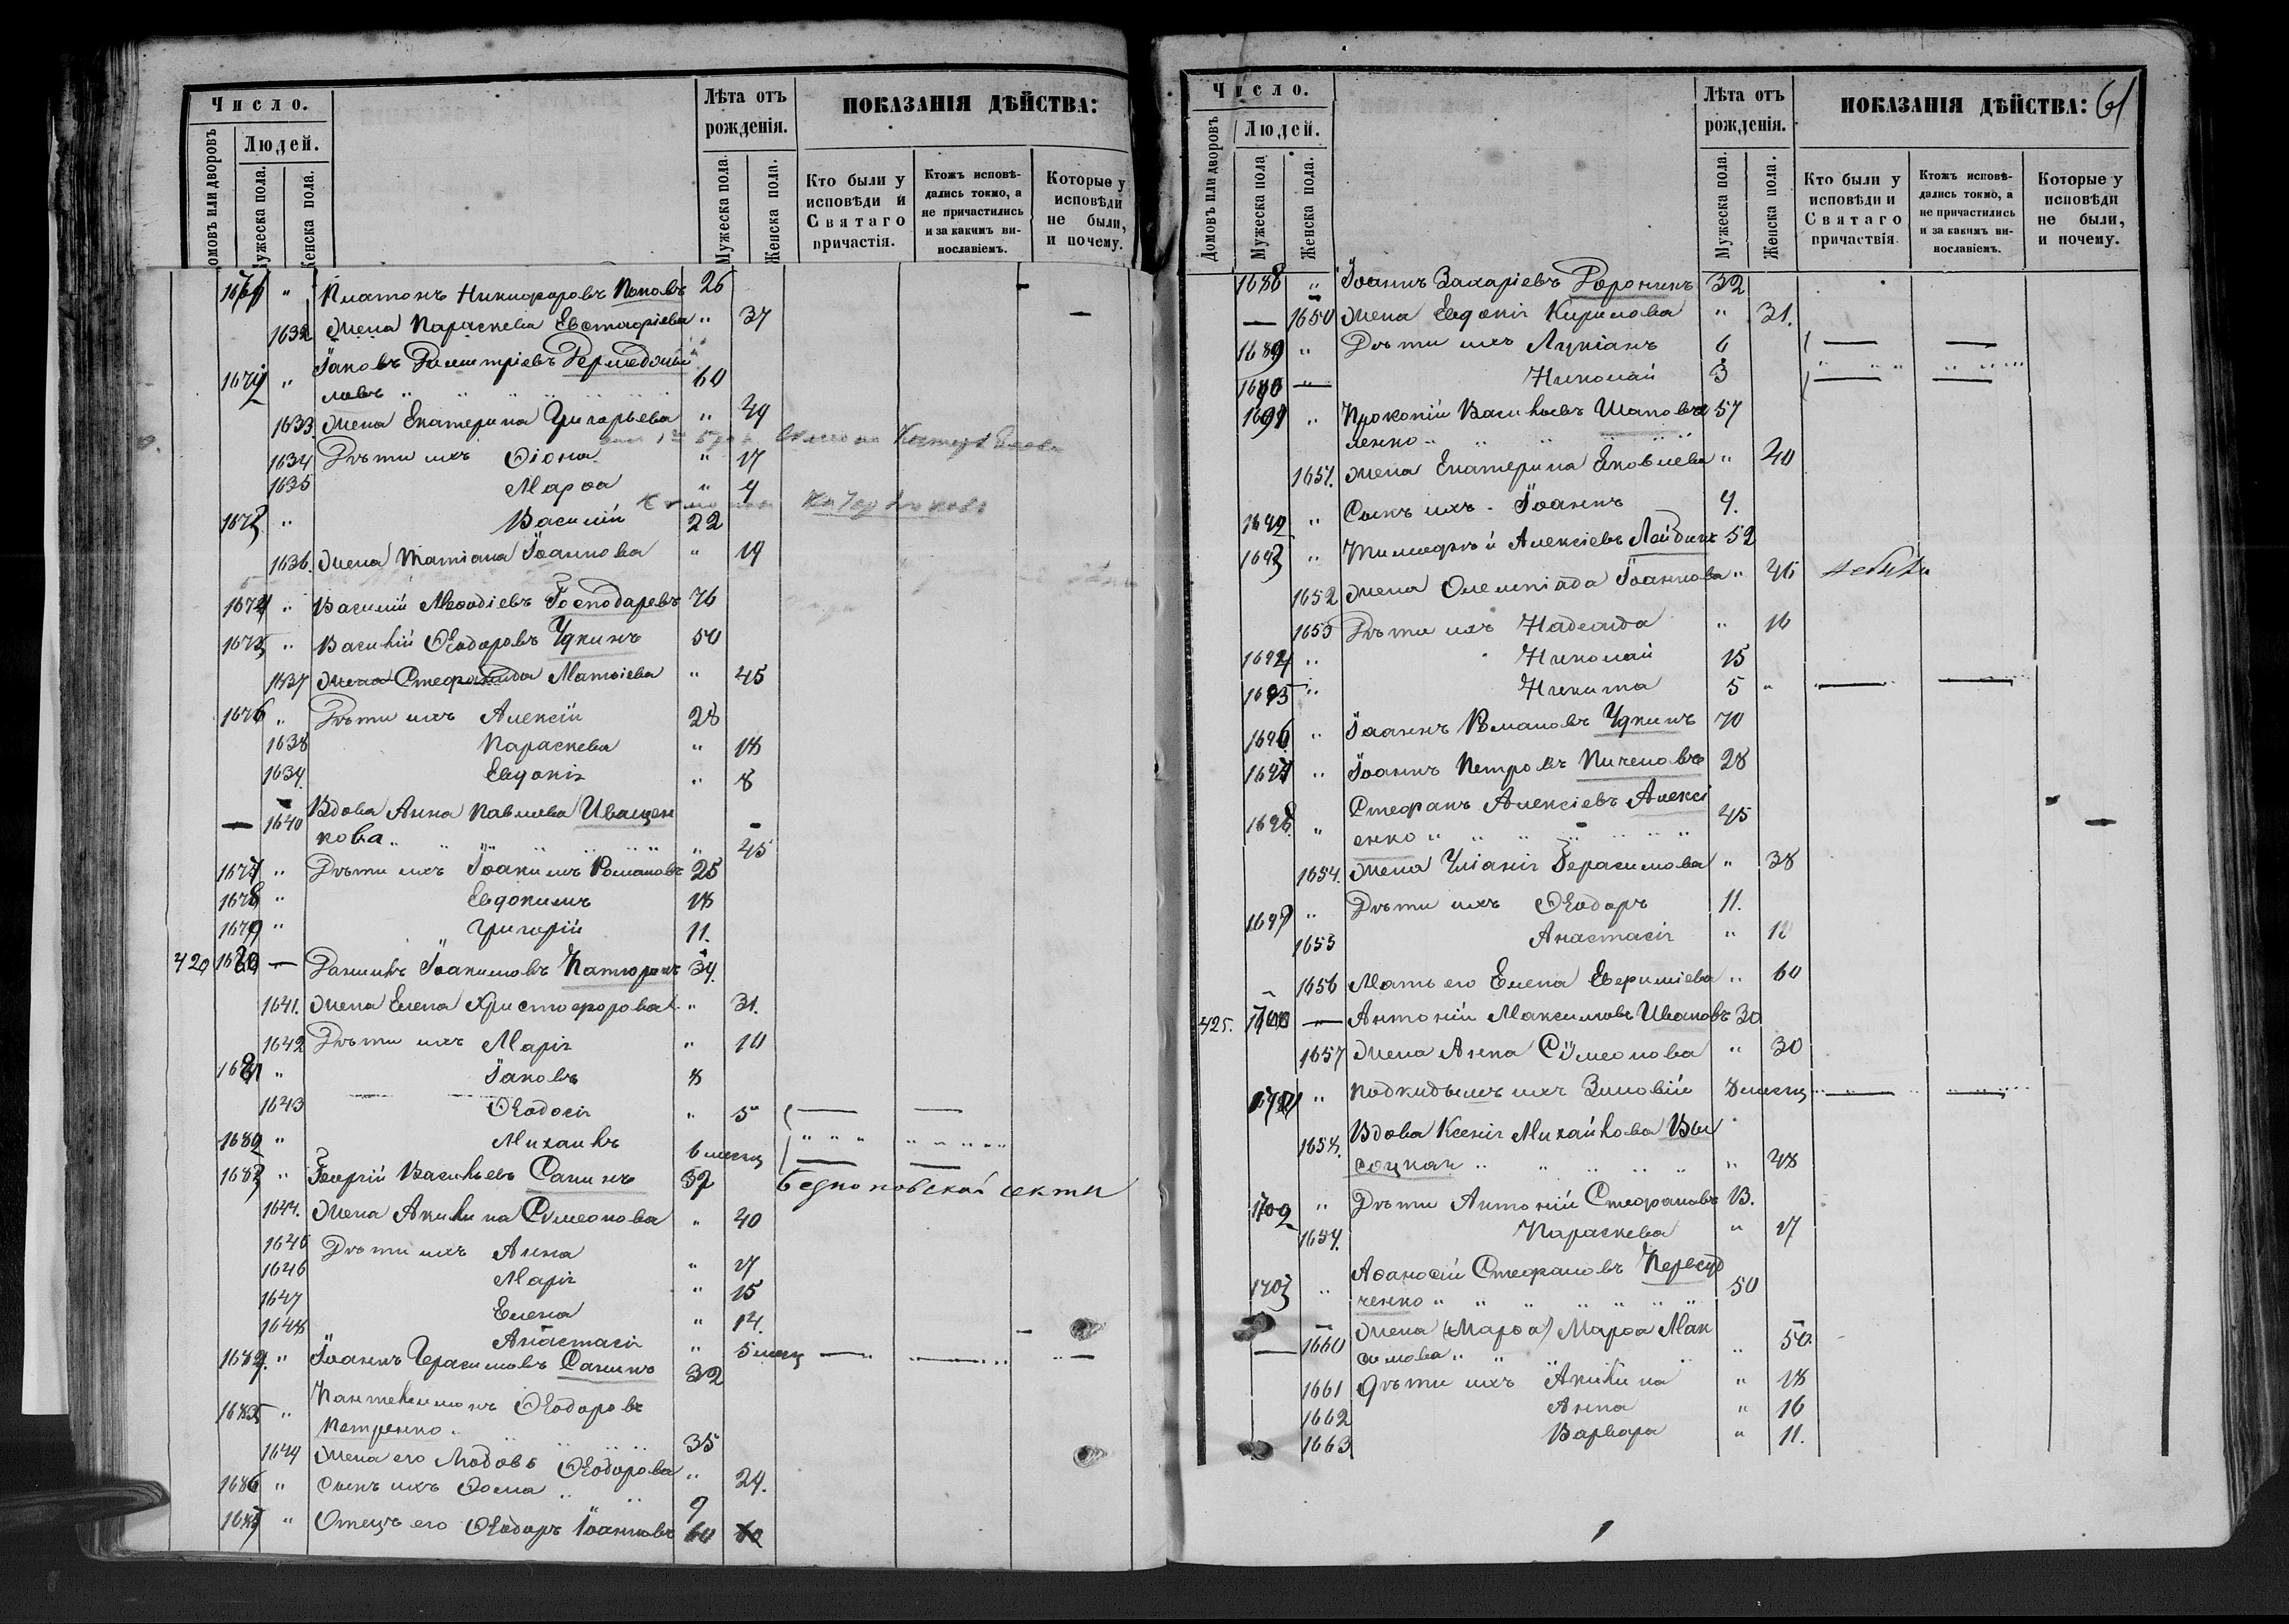 Число.
Людей.
Домовъ или дворовъ
Мужеска пола.
Женска пола.
Лѣта отъ рожденія.
Мужеска пола.
Женска пола.
ПОКАЗАНІЯ ДѢЙСТВА:
Кто были у исповѣди и Святаго причастія.
Ктожъ исповѣдались токмо, а не причастились и за какимъ винословіемъ.
Которые у исповѣди не были, и почему.
" Платонъ Никифоровъ Поповъ 26
1632 Жена Параскева Евстафіева " 37
Іаковъ Димитріевъ
ловъ " 60
1633. Жена Екатерина Григорьева " 49
1634 Дѣти ихъ Фіона " 17
1635 Марѳа " 9
" Василій 22
1636. Жена Татіана Іоаннова " 19
1674 " Василій Меѳодіевъ Господаревъ 76
1675 " Василій Ѳеодоровъ Удкинъ 50
1637 Жена Стефанида Матѳіева " 45
1676 " Дѣти ихъ Алексій 28
1638 Параскева " 18
1639. Евдокія " 8
1640 Вдова Анна Павлова Иващен
кова " " 45
1677 " Дѣти ихъ Іоакимъ Романовъ 25
1678 " Евдокимъ 18
1679 " Григорій 11.
420 1680 — Даніилъ Іоакимовъ 34.
1641. Жена Елена Христофорова " 31.
1642 Дѣти ихъ Марія " 10
1681 " Іаковъ 8
1643 Ѳеодосія " 5
1682 " Михаилъ 6 месяц
1683 " Георгій Васильевъ Санинъ 52 секты
1644. Жена Акилина Симеонова " 40
1645 Дѣти ихъ Анна " 17
1646 Марія " 15
1647 Елена " 14.
1648 Анастасія " 5 месяц
1684. " Іоаннъ Герасимовъ Санинъ 32
1685 " Пантелеимонъ Ѳеодоровъ
Петренко. 35
1649 Жена его Любовь Ѳеодорова " 24.
1686 " Сынъ ихъ Ѳома 9
1687 " Отецъ его Ѳеодоръ Іоанновъ 60
61
Число.
Людей.
Домовъ или дворовъ
Мужеска пола
Женска пола.
Лѣта отъ рожденія.
Мужеска пола.
Женска пола.
ПОКАЗАНІЯ ДѢЙСТВА:
Кто были у исповѣди и Святаго причаствія
Ктожъ исповѣдались токмо, а не причастились и за какимъ винословіемъ.
Которые у исповѣди не были, и почему.
1688 " Іоаннъ Захаріевъ Доронинъ 32
1650 Жена Евдокія Кирилова " 31.
1689 " Дѣти ихъ Лукіанъ 6
1690 — Николай 3
1691 " Прокопій Васильевъ Шапова
ленко " 57
1651. Жена Екатерина Яковлева " 40
1692 " Сынъ ихъ. Іоаннъ 9.
1693 " Тимофей Алексіевъ 52
1652 Жена Олемпіада Іоаннова " 46
1653 Дѣти ихъ Надежда " 16
1694 " Николай 15
1695 " Никита 5 "
1696 " Іоаннъ Романовъ Удкинъ 70
1697 " Іоаннъ Петровъ 28
1698. " Стефанъ Алексіевъ Алексі
енко " 45
1654. Жена Уліанія Герасимова " 38
1699 " Дѣти ихъ Ѳеодоръ 11.
1655 Анастасія " 10
1656 Мать его Елена Евѳиміева " 60
425. 1700 — Антоній Максимовъ Ивановъ 30
1657 Жена Анна Сѵмеонова " 30
1701 " Подкидышъ ихъ Зиновій 8 месяц
1658. Вдова Ксенія Михайлова Вы
соцкая " " 48
1702 " Дѣти Антоній Стефановъ 13.
1659. Параскева " 17
1703 " Аѳанасій Стефановъ
ченко " 50
1660 Жена (Марѳа) Марѳа Мак
симова " " 50.
1661 Дѣти ихъ Акилина " 18
1662 Анна " 16
1663 Варвара " 11.